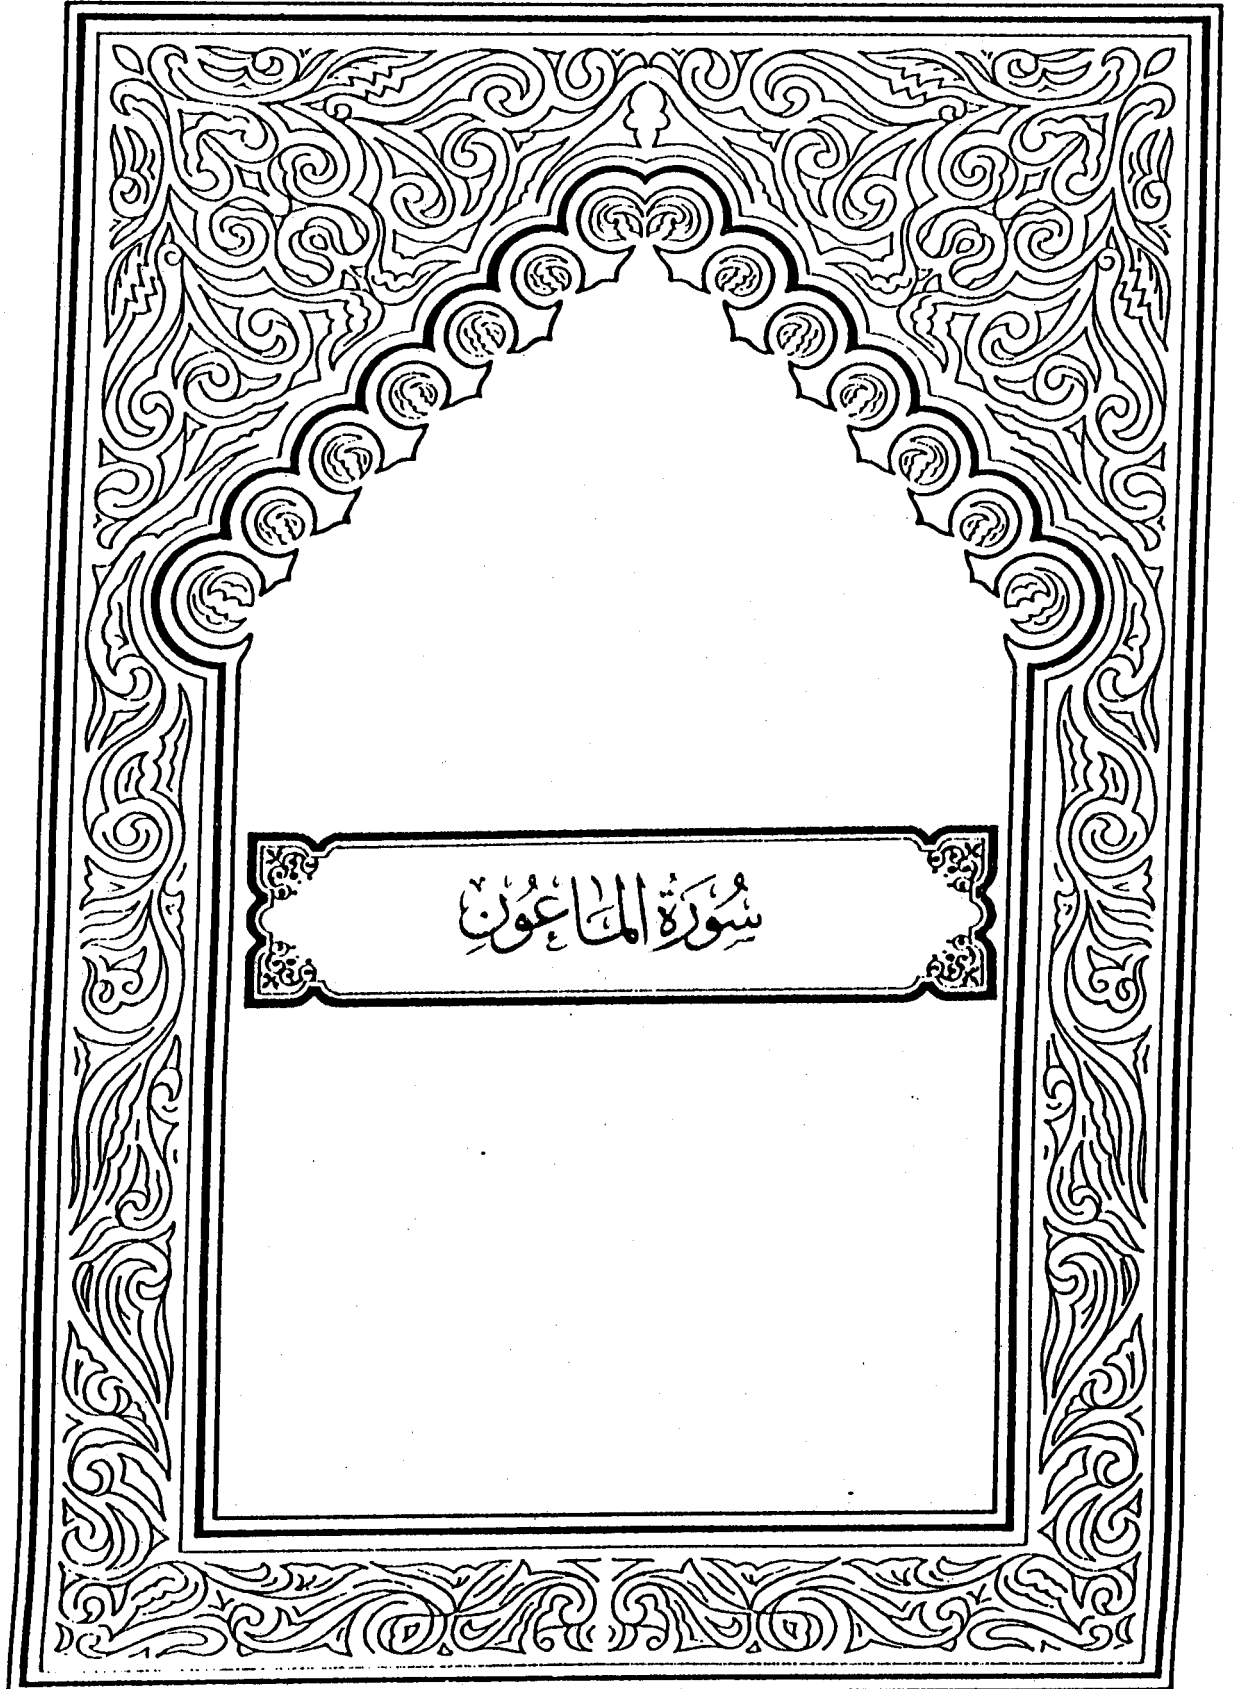 سُورَةُ المَاعُونِ